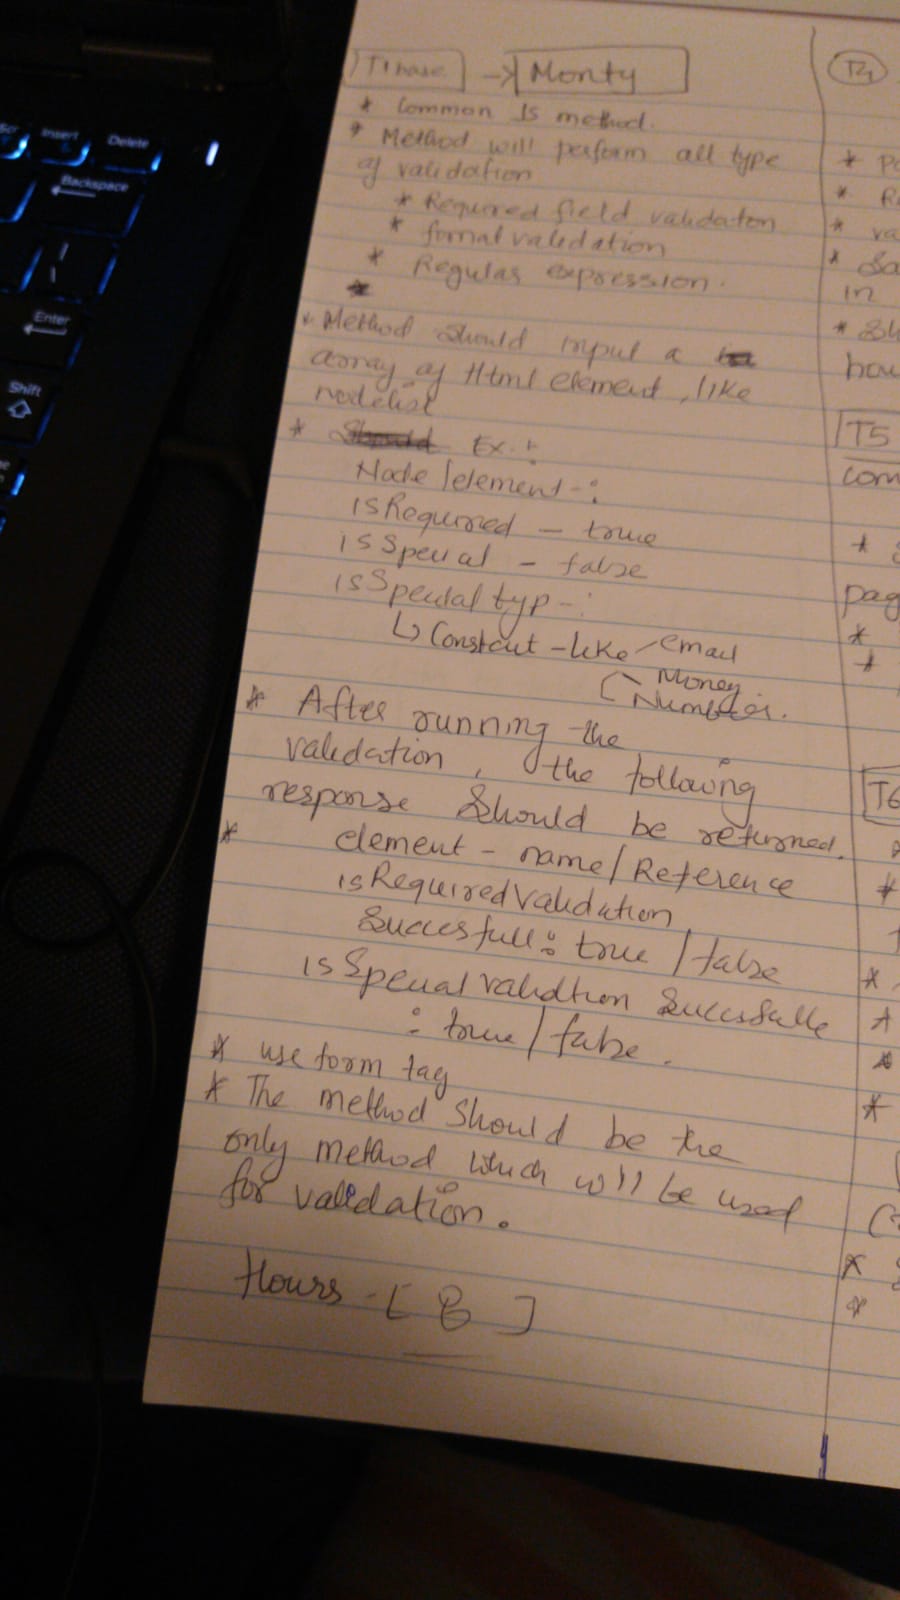 Insert
Delete
Backspace
Enter
Shift
T1 → Monty
* Common Js method.
* Method will perform all type
of validation
* Required field validaton
* format validation
* Regular expression.
* Method should input a
array of Html element, like
nodelist
* Ex.:
Node/element-:
isRequired - true
isSpecial - false
isSpecial typ-:
↳ Constant - like email
Money
Number.
* After running the
validation, the following
response should be returned.
* element - name/Reference
isRequiredValidation
Succesfull: true/false
isSpecial validtion Successfulle
: true/false.
* use form tag
* The method should be the
only method which will be used
for validation.
Hours - [ 8 ]
* va
in
* Sh
hou
T5
com
pag
T6